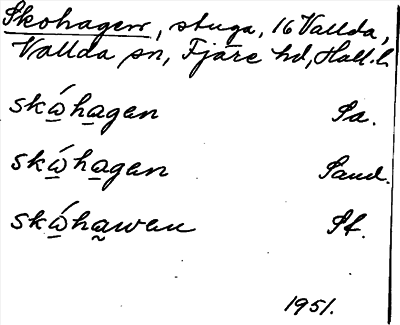 Skohagen, stuga, 16 Vallda,
Vallda sn, Fjäre hd, Hall. l.
skó̲ha̲gen Sa.
skó̲ha̲gen Sand.
skó̲ha̰wen Sf.
1951.